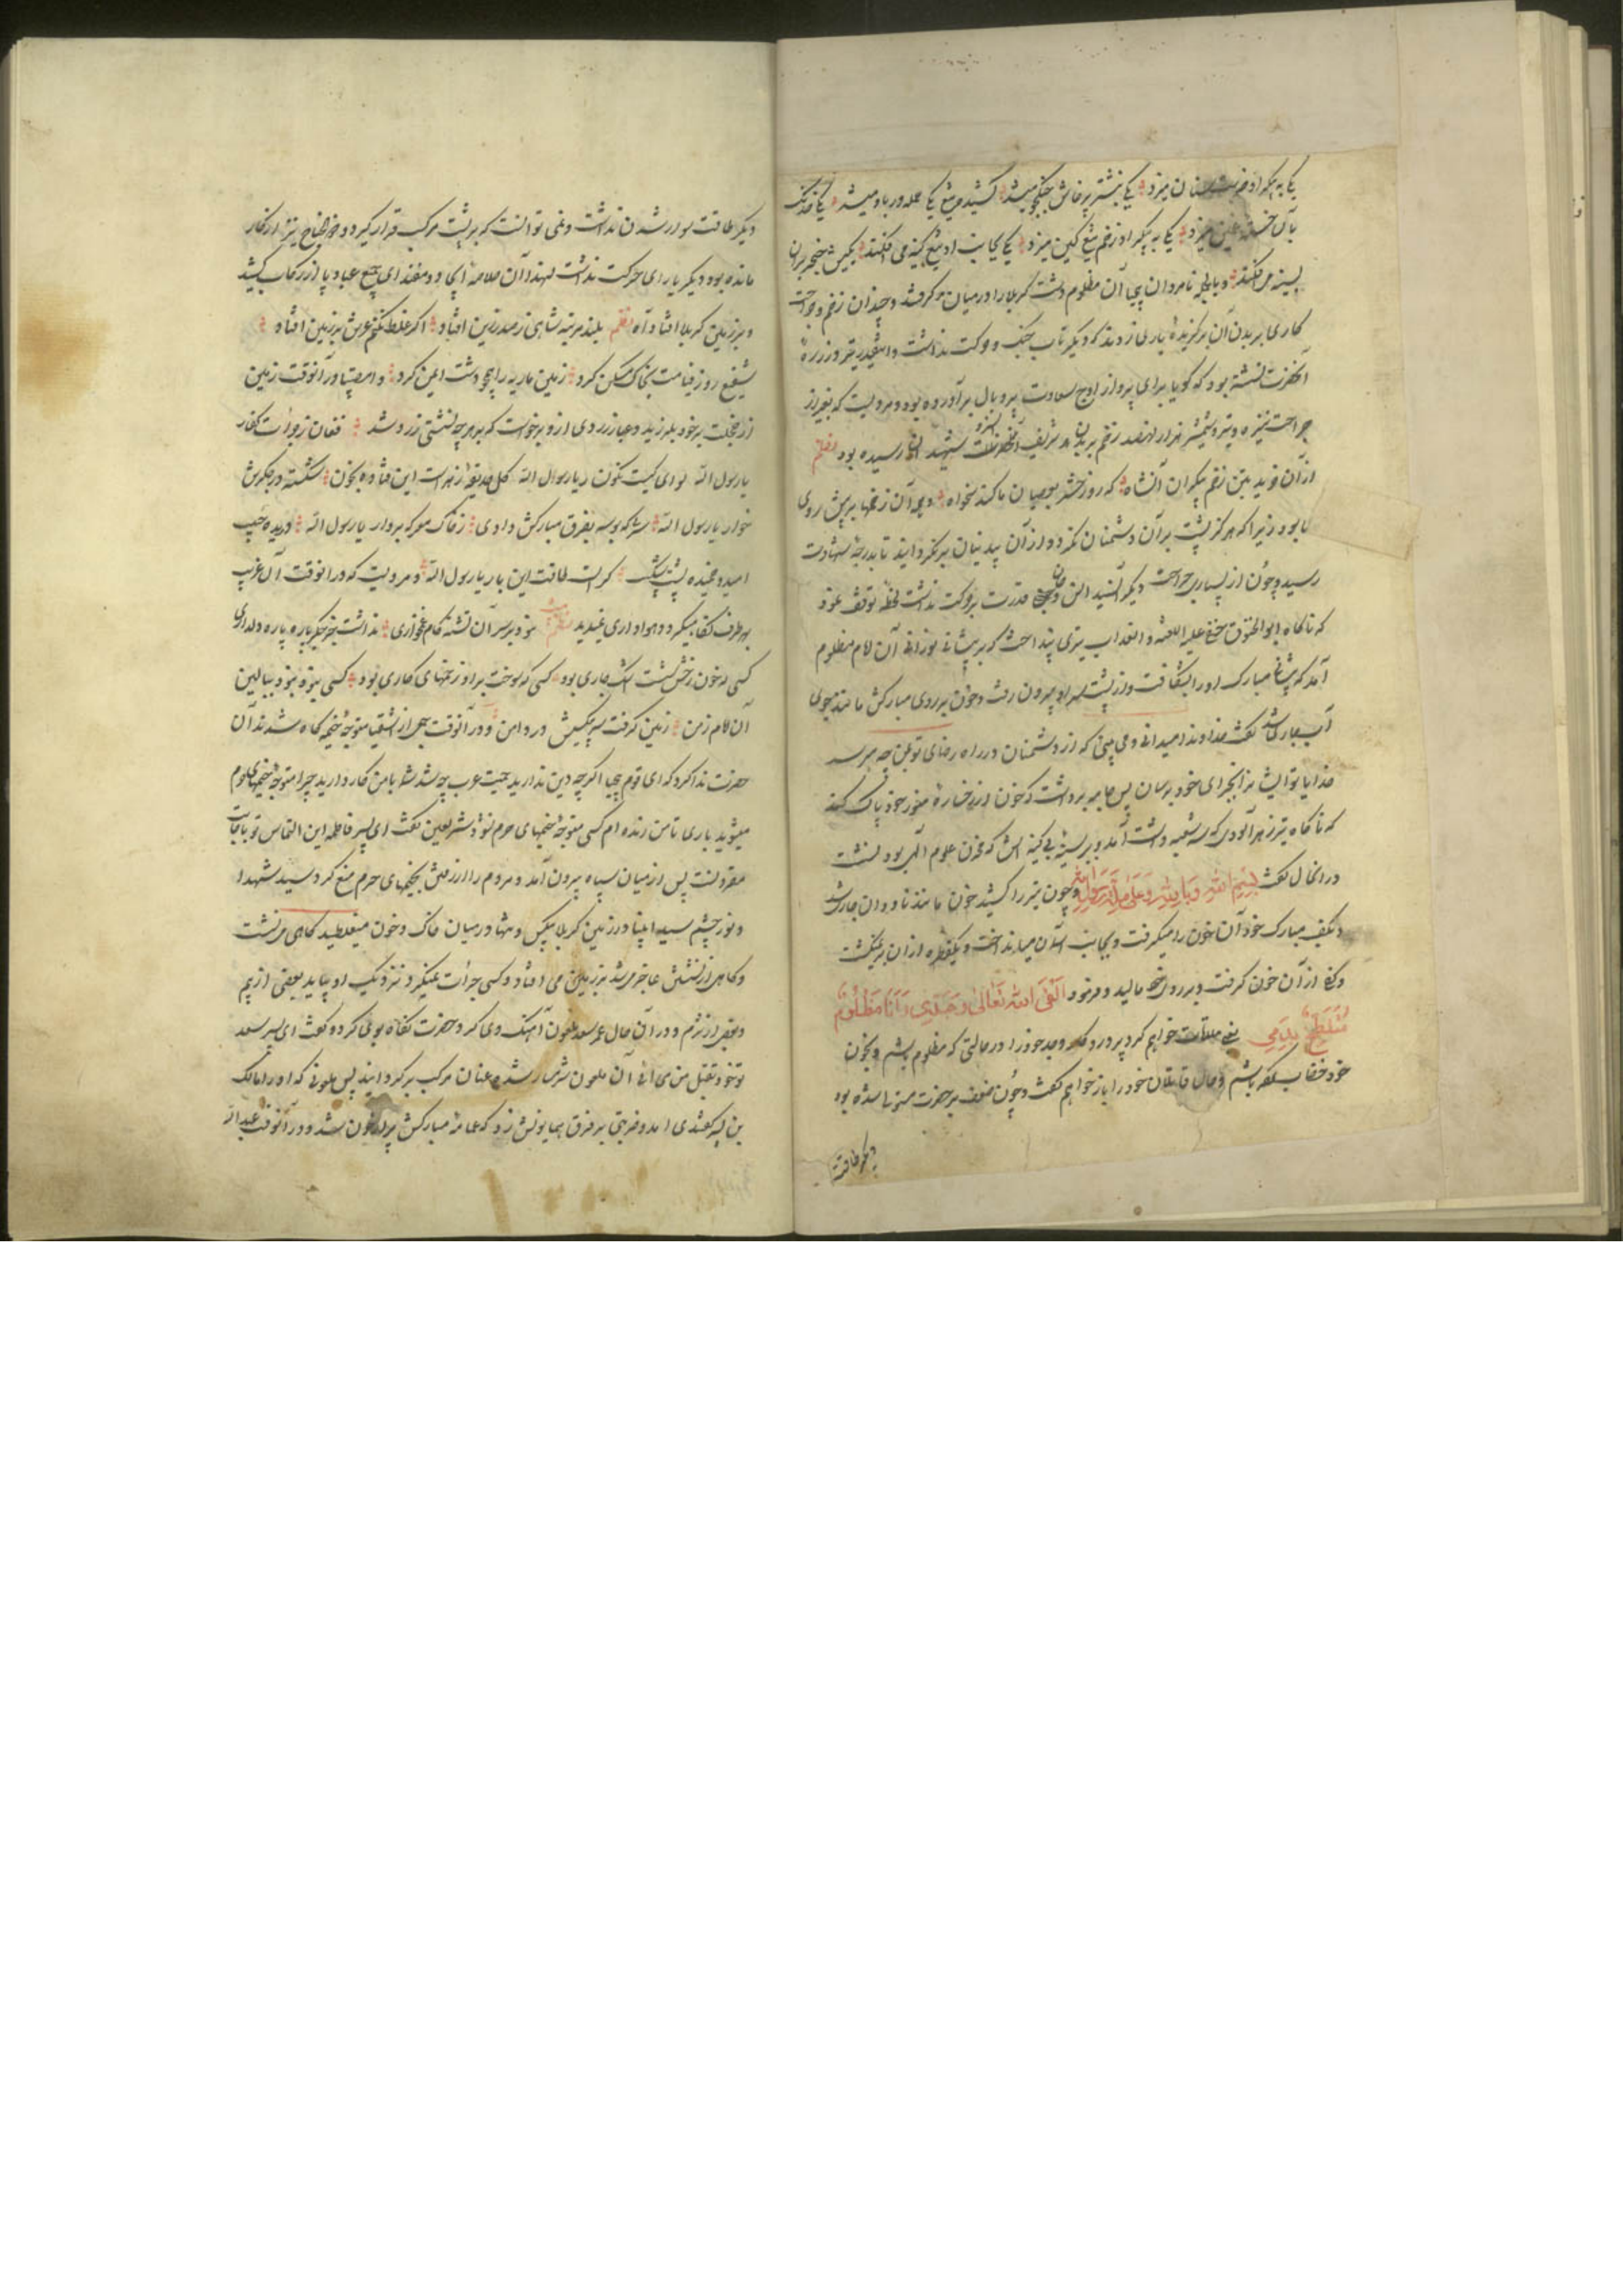 یکی به پیکر او ضربت سنان میزد یکی نشتر پرخاش جنگجو میشد کشیده تیغ یکی حمله ور باو میشد یکی خدنک
بآن خسته غمین میزد یکی به پیکر او زخم تیغ کین میزد یکی بجانب او تیغ کینه می افکند یکیش خنجر بران
بسینه می افکند وبالجمله نامردان بیحیا آن مظلوم دشت کربلا را در میان گرفتند وچندان زخم وجراحت
کاری بر بدن آن برگزیدهٔ باری زدند که دیگر تاب جنک و حرکت نداشت و اینقدر تیر در زره
آنحضرت نشسته بود که گویا برای پرواز اوج سعادت پر و بال برآورده بود ومرویست که بغیر از
جراحت نیزه وتیر وشمشیر هزار و نهصد زخم بر بدن شریف آنحضرت رسیده بود نظم
از آن فزید بتن زخم بیکران آنشاه که روز حشر بعصیان ما کند نخواه وهمه آن زخمها برپیش روی
ما بود زیرا که هرگز پشت بر آن دشمنان نکرد و از آن بیدینان برنگردانید تا بدرجهٔ شهادت
رسید وچون از بسیاری جراحت دیگر آنسید انس وجان قدرت بر حرکت نداشت لحظهٔ توقف نمود
که ناگاه ابوالحتوق جعفی علیه اللعنه و العذاب تیری بینداخت که بر پیشانی نورانی آن امام مظلوم
آمد که پیشانی مبارک او را بشکافت و از پشت سر او بیرون رفت وخون بر روی مبارکش مانند جوی
آب جاری شد گفت خداوندا میدانی و می بینی که از دشمنان در راه رضای تو بمن چه میرسد
خدایا تو ایشانرا بجزای خود برسان پس جامه برداشت که خون از رخسارهٔ منور خود پاک کند
که ناگاه تیر زهرآلودی که سه شعبه داشت آمد و بر سینهٔ بی کینه اش که مخزن علوم الهی بود نشست
در انحال گفت بسم الله وبالله وعلی ملة رسول الله وچون تیر را کشید خون مانند ناودان جاری شد
و بکف مبارک خود آن خون را میگرفت و بجانب آسمان میانداخت ویکقطره از آن برنمیگشت
وکفی از آن خون گرفت و بر روی خود مالید وفرمود القی الله تعالی وجدی وانا مظلوم
متلطخ بدمی یعنی ملاقات خواهم کرد پروردگار وجد خود را در حالتی که مظلوم باشم وبخون
خود خضاب کرده باشم وحال قاتلان خود را باز خواهم گفت وچون ضعف بر حضرت مستولی شده بود
دیگر طاقت
دیگر طاقت سوار شدن نداشت ونمی توانست که بر پشت مرکب قرار گیرد وذوالجناح نیز از کار
مانده بود ودیگر یارای حرکت نداشت لهذا آن خلاصه ایجاد ومقتدای جمیع عباد پا از رکاب کشید
و بر زمین کربلا افتاد آه نظم بلند مرتبه شاهی ز صدر زین افتاد اگر غلط نکنم عرش بر زمین افتاد
شفیع روز قیامت بخاک مسکن کرد زمین ماریه را همچو دشت ایمن کرد وامصیبتا در آنوقت زمین
از خجلت بر خود بلرزید وغبار زردی از او برخواست که بر هر چه نشستی زرد شد فغان ز جرأت کفار
یارسول الله لوای کیست نگون یارسول الله گل حدیقهٔ زهراست این فتاده بخون شکسته در جگرش
خوار یارسول الله سرش که بوسه بفرق مبارکش دادی ز خاک معرکه بردار یارسول الله دریده جیب
امید وخمیده پشت کراست طاقت این بار یارسول الله ومرویست که در انوقت آن غریب
بهر طرف نگاه میکرد وهواداری نمیدید نظم نبود بر سر آن تشنه کام غمخواری نداشت جز جگر پاره پاره دلداری
کسی که خون ز رخش شست اشک جاری بود کسی که سوخت براو زخمهای کاری بود کسی نبود ببالین
آن امام زمن زمین گرفت سر بیکسیش در دامن ودر آنوقت جمعی از اشقیا متوجه خیمه گاه شدند آن
حضرت ندا کرد که ای قوم بیحیا اگر چه دین ندارید حمیت عرب چه شد شما با من کار دارید چرا متوجه خیمهای حرم
میشوید باری تا من زنده ام کسی متوجه خیمهای حرم نشود شمر لعین گفت ای پسر فاطمه این التماس تو باجابت
مقرونست پس از میان سپاه بیرون آمد و مردم را از رفتن بخیمهای حرم منع کرد وسید شهدا
ونور چشم سید انبیا در زمین کربلا بیکس وتنها در میان خاک وخون میغلطید گاهی می نشست
وگاهی از نشستن عاجز میشد بر زمین می افتاد وکسی جرأت نمیکرد نزدیک او بیاید بعضی از بیم
وبعضی از شرم ودر آن حال عمر سعد ملعون آهنک وی کرد حضرت نگاه بوی کرد وگفت ای پسر سعد
تو خود بقتل من می آئی آن ملعون شرمسار شده عنان مرکب برگردانید پس ملعونی که او را مالک
بن یسر کندی آمد وضربتی بر فرق همایونش زد که عمامه مبارکش پر از خون شد ودر آنوقت عبدالله